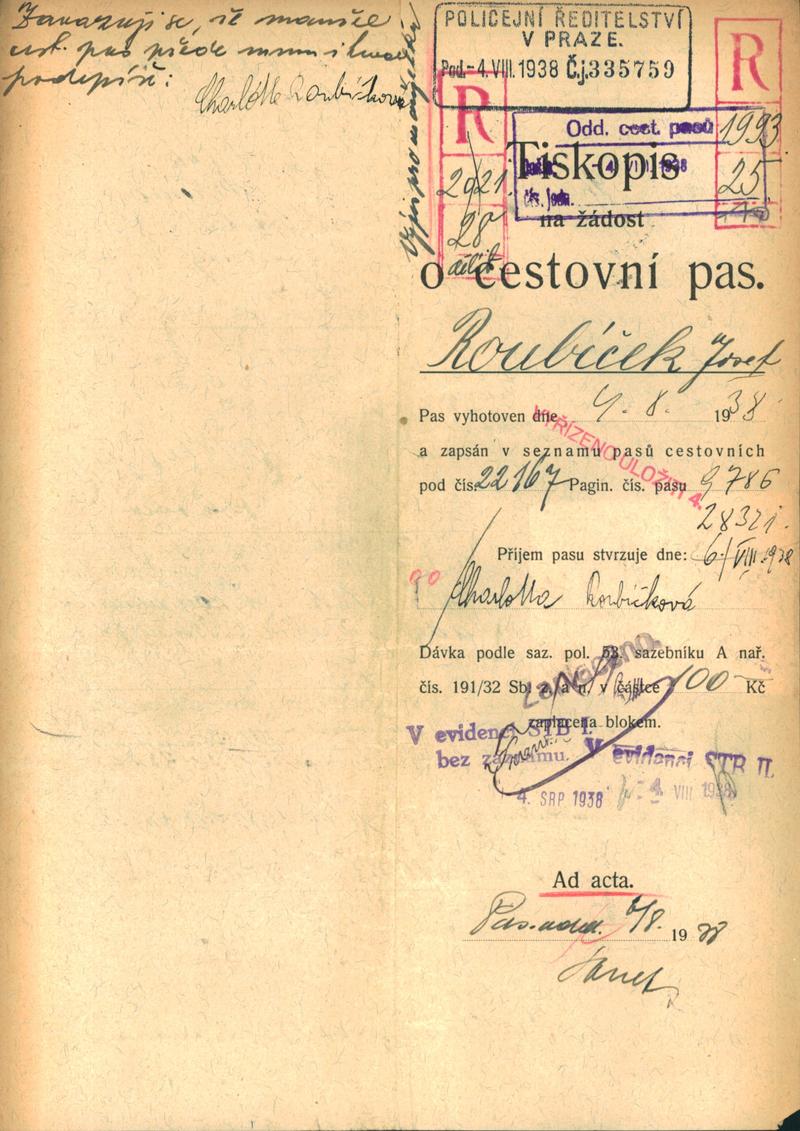 Zavazuji se, že manžel
cest. pas přede mnou
podepíše:
Charlotta Roubíčková
POLICEJNÍ ŘEDITELSTVÍ
V PRAZE.
Pod.-4.VIII.1938 Č.j.335759
R
R
Odd. cest. pasů
1993
25
2021
28
Tiskopis
na žádost
o cestovní pas.
Roubíček Josef
Pas vyhotoven dne 4. 8. 1938
VYŘÍZENO ULOŽITI
a zapsán v seznamu pasů cestovních
pod čís. 22167 Pagin. čís. pasu 9786
28321.
Příjem pasu stvrzuje dne: 6/VIII.938
Charlotta Roubíčková
Dávka podle saz. pol. 53. sazebníku A nař.
čís. 191/32 Sb. z. a n. v částce 100 Kč
Zaplaceno.
zaplacena blokem.
V evidenci STB I.
bez záznamu.
V evidenci STB II.
4. SRP 1938
4 VIII 1938
Ad acta.
6/8. 1938